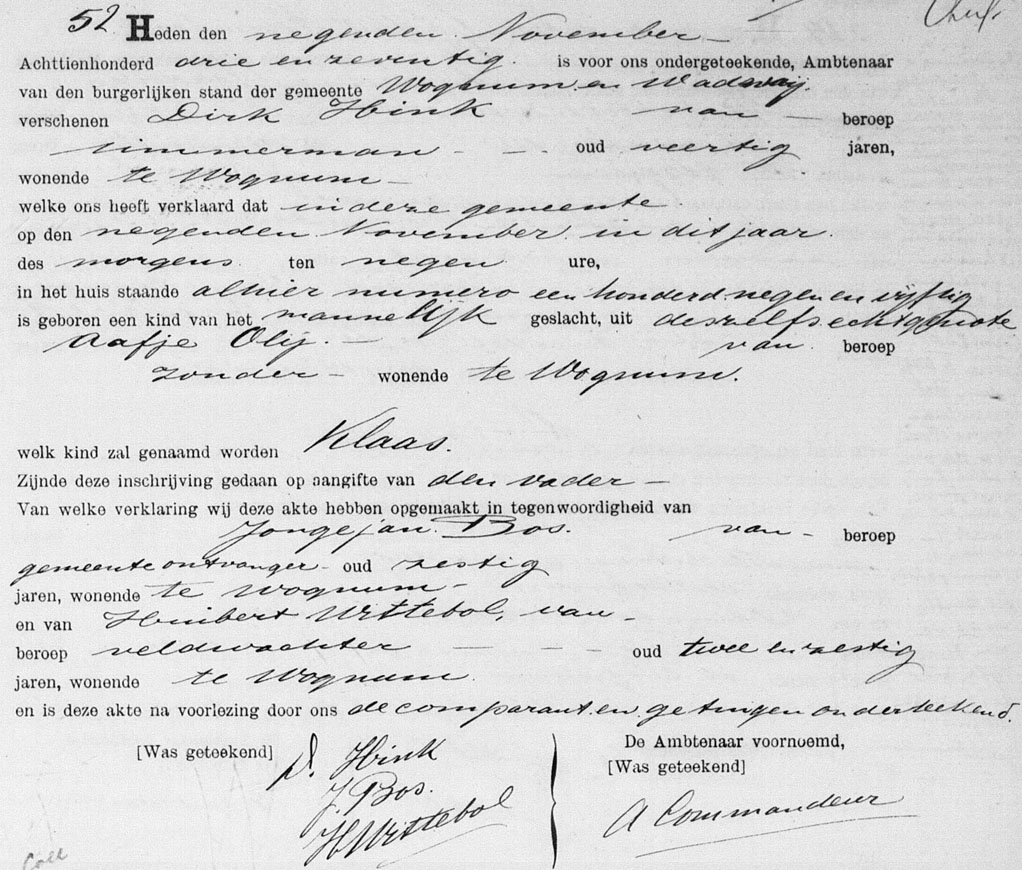 52 Heden den negenden November
Achttienhonderd drie en zeventig is voor ons ondergeteekende, Ambtenaar
van den burgerlijken stand der gemeente Wognum en Wadway.
verschenen Dirk Hink van beroep
timmerman oud veertig jaren,
wonende te Wognum
welke ons heeft verklaard dat in deze gemeente
op den negenden November in dit jaar
des morgens ten negen ure,
in het huis staande alhier numero een honderd negen en vijftig
is geboren een kind van het mannelijk geslacht, uit deszelfs echtgenote
Aafje Olij van beroep
zonder wonende te Wognum.
welk kind zal genaamd worden Klaas.
Zijnde deze inschrijving gedaan op aangifte van den vader
Van welke verklaring wij deze akte hebben opgemaakt in tegenwoordigheid van
Jongejan Bos. van beroep
gemeente ontvanger oud zestig
jaren, wonende te Wognum
en van Huibert Uittebol, van
beroep veldwachter oud twee en zestig
jaren, wonende te Wognum.
en is deze akte na voorlezing door ons de comparant en getuigen onderteekend.
[Was geteekend] D. Hink
J. Bos.
H Uittebol
De Ambtenaar voornoemd,
[Was geteekend]
A Commandeur